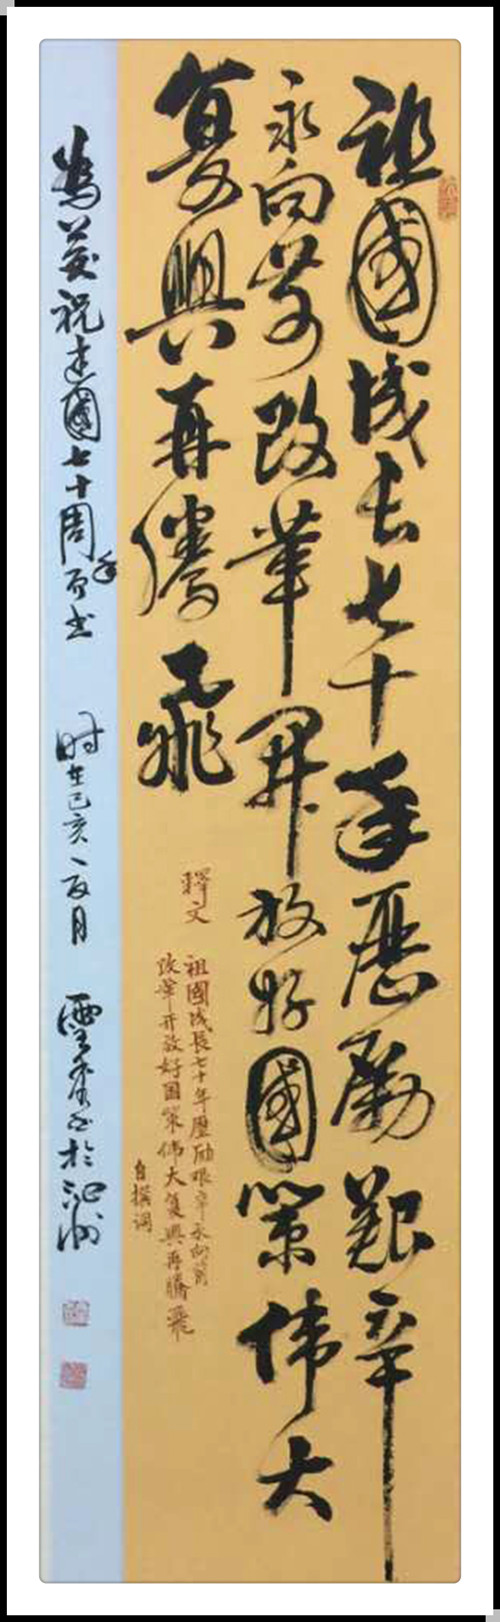 祖國成长七十年歷励艱辛
永向前改革開放好國策偉大
复興再騰飛
釋文
祖國成長七十年歷励艱辛永向前
改革开放好国策偉大复興再騰飛
自撰词
為慶祝建國七十周年而书
时在己亥
月
於沁州